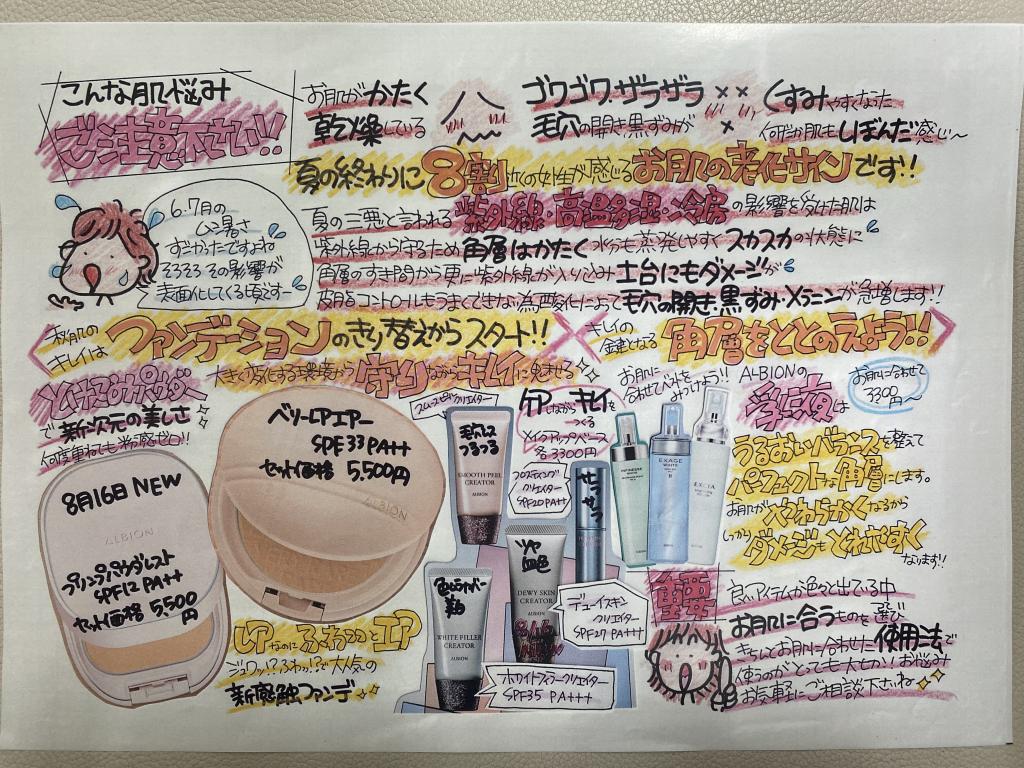 こんな肌悩み
ご注意下さい!!
お肌がかたく
乾燥している
ゴワゴワ、ザラザラ
毛穴の開き黒ずみが
くすみやすくなった
何だか肌もしぼんだ感じ〜
夏の終わりに8割近くの女性が感じるお肌の老化サインです!!
6.7月の
ムシ暑さ
すごかったですよね
そろそろその影響が
表面化してくる頃です〜
夏の三悪と言われる紫外線・高温多湿・冷房の影響を受けた肌は
紫外線から守るため角層はかたく水分も蒸発しやすくスカスカの状態に
角層のすき間から更に紫外線が入り込み土台にもダメージが
皮脂コントロールもうまくできない為酸化によって毛穴の開き・黒ずみ・メラニンが急増します!!
秋肌の
キレイは
ファンデーションのきり替えからスタート!!
キレイの
鍵となる
角層をととのえよう!!
大きく変化する環境から守りながらキレイに魅せる
で新次元の美しさ
何度重ねても粉感ゼロ!!
8月16日 NEW
ALBION
プリンプパウダレスト
SPF12 PA++
セット価格 5,500円
ベリーレアエアー
SPF33 PA++
セット価格 5,500円
ALBION
レアなのにふわっとエア
ジュワッ!?ふわっ!?で大人気の
新感触ファンデ
スムースピールクリエイター
毛穴レス
つるつる
SMOOTH PEEL
CREATOR
ALBION
ケアしながらキレイを
つくる
メイクアップベース
各3300円
フロスティング
クリエイター
SPF20 PA++
サラサラ
ツヤ
血色
DEWY SKIN
CREATOR
ALBION
デューイスキン
クリエイター
SPF27 PA+++
色ムラカバー
美白
WHITE FILLER
CREATOR
ALBION
ホワイトフィラークリエイター
SPF35 PA+++
お肌に
合わせてベストをみつけよう!!
ALBIONの
乳液は
お肌に合わせて
3300円〜
INFINESSE
EXAGE
WHITE
EXCIA
うるおいバランスを整えて
パーフェクトな角層にします。
お肌がやわらかくなるから
しっかりダメージもとれやすく
なります!!
重要
良いアイテムが色々と出ている中
お肌に合うものを選び
きちんとお肌に合わせた使用法で
使うのがとっても大切!お悩み
お気軽にご相談下さいね